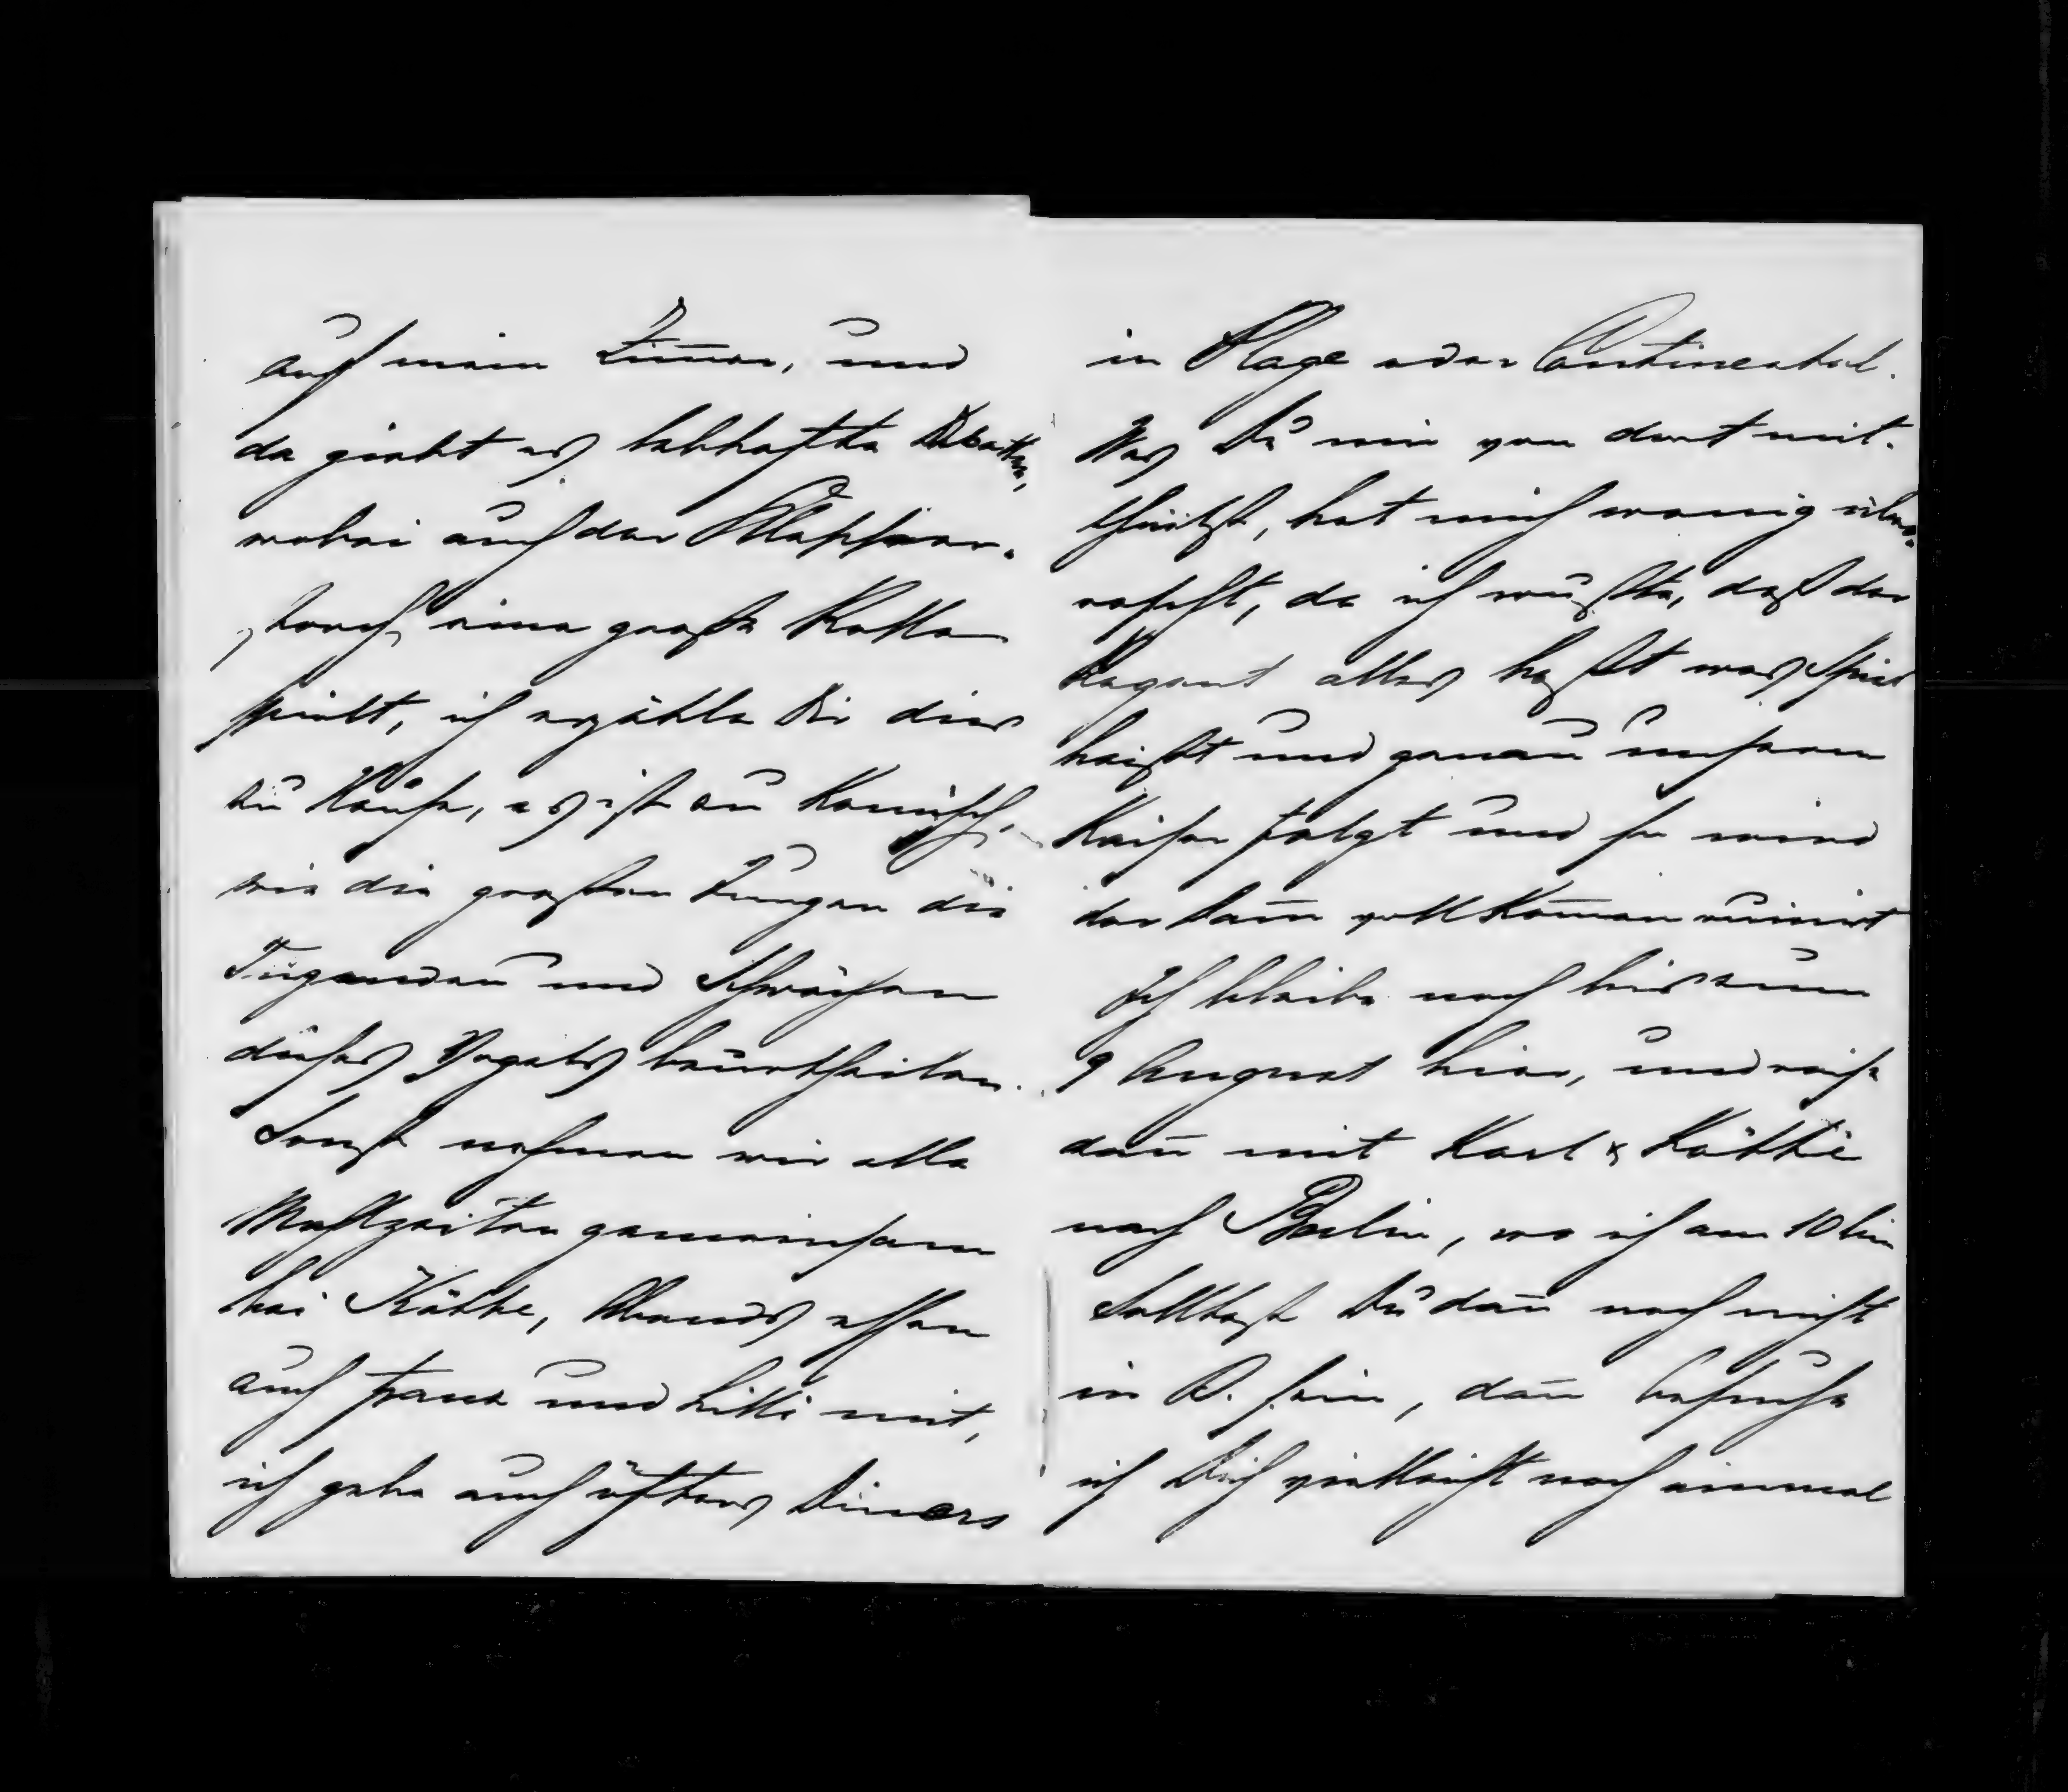 auf mein Zim̄er, und
da giebt es lebhafte Debatten,
wobei auch der Klapper-
storch eine große Rolle
spielt, ich erzähle Dir dies
zu Hause, es ist zu komisch,
wie die großen Jungen die
Tugenden und Schwächen
dieses Vogels beurtheilen.
Sonst nehmen wir alle
Mahlzeiten gemeinsam
bei Käthe, Abends essen
auch Franz und Lilli mit,
ich gebe auch öfters Diners
in Plage oder Continental.
Was Du mir von dort mit-
theilst, hat mich wenig über-
rascht, da ich wußte, daß der
Regent alles haßt was
heißt und genau unserem
Kaiser folgt und so wird
der dan̄ vollkom̄en ruinirt
Ich bleibe noch bis zum
9 August hier, und reise
dan̄ mit Karl & Käthe
nach Berlin, wo ich am 10 bin
Solltest Du dan̄ noch nicht
in B. sein, dan̄ besuche
ich Dich vielleicht noch einmal